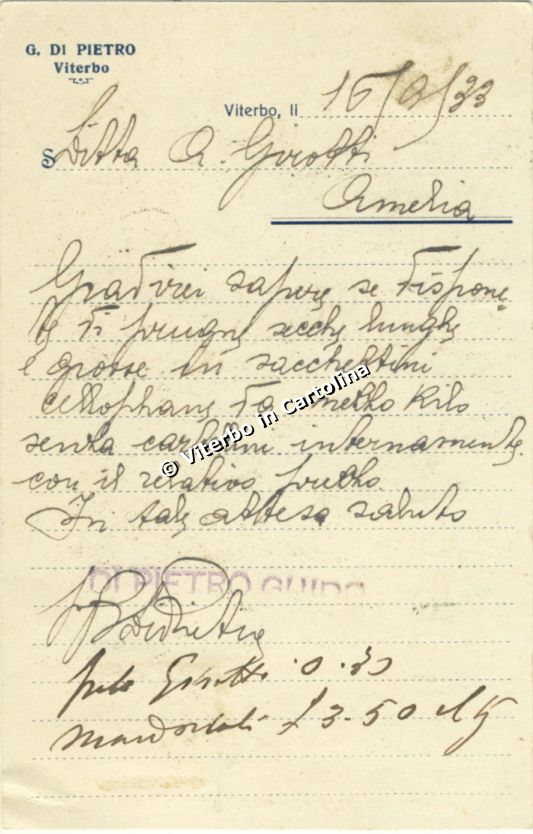 G. DI PIETRO
Viterbo
Viterbo, li 16/9/33
S Ditta A. Girotti
Amelia
Gradirei sapere se dispone-
te di prugne secche lunghe
e grosse in sacchettini
cellophane da mezzo Kilo
senza cartellini internamente
con il relativo prezzo.
In tale attesa saluto
DI PIETRO GUIDO
0.30
£ 3.50
© Viterbo in Cartolina